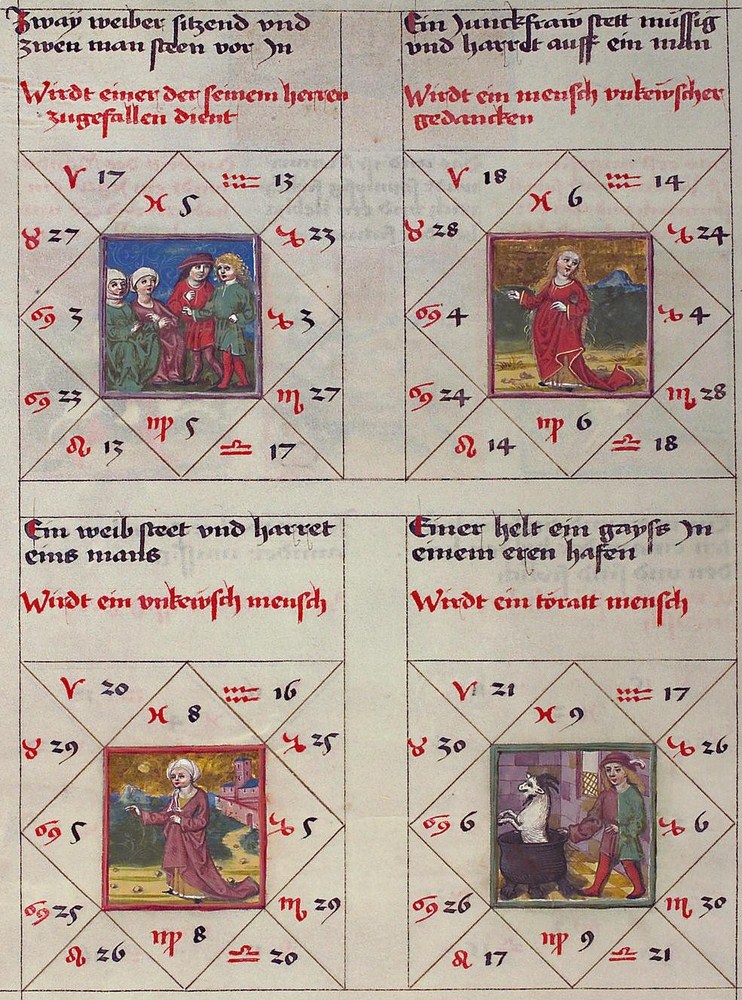 Zway weiber sitzend vnd
zwen man steen vor In
Wirdt einer der seinem herren
zugefallen dient
♈ 17
♒ 13
♓ 5
♉ 27
♑ 23
♋ 3
♑ 3
♋ 23
♏ 27
♍ 5
♌ 13
♎ 17
Ein Junckfraw stett müssig
vnd harret auff ein man
Wirdt ein mensch vnkewscher
gedancken
♈ 18
♒ 14
♓ 6
♉ 28
♑ 24
♋ 4
♑ 4
♋ 24
♏ 28
♍ 6
♌ 14
♎ 18
Ein weib steet vnd harret
eins mans
Wirdt ein vnkewsch mensch
♈ 20
♒ 16
♓ 8
♉ 29
♑ 25
♋ 5
♑ 5
♋ 25
♏ 29
♍ 8
♌ 26
♎ 20
Einer helt ein gayss In
einem eren hafen
Wirdt ein toratt mensch
♈ 21
♒ 17
♓ 9
♉ 30
♑ 26
♋ 6
♑ 6
♋ 26
♏ 30
♍ 9
♌ 17
♎ 21